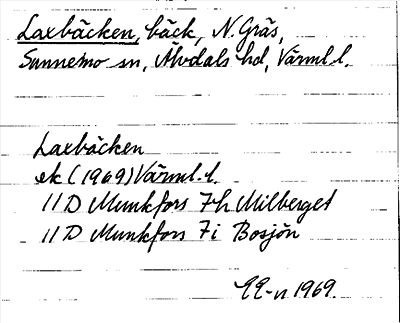 Laxbäcken, bäck, N. Gräs,
Sunnemo sn, Älvdals hd, Värml. l.
Laxbäcken
ek (1969) Värml. l.
11 D Munkfors 7h Milberget
11 D Munkfors 7i Bosjön
1969.